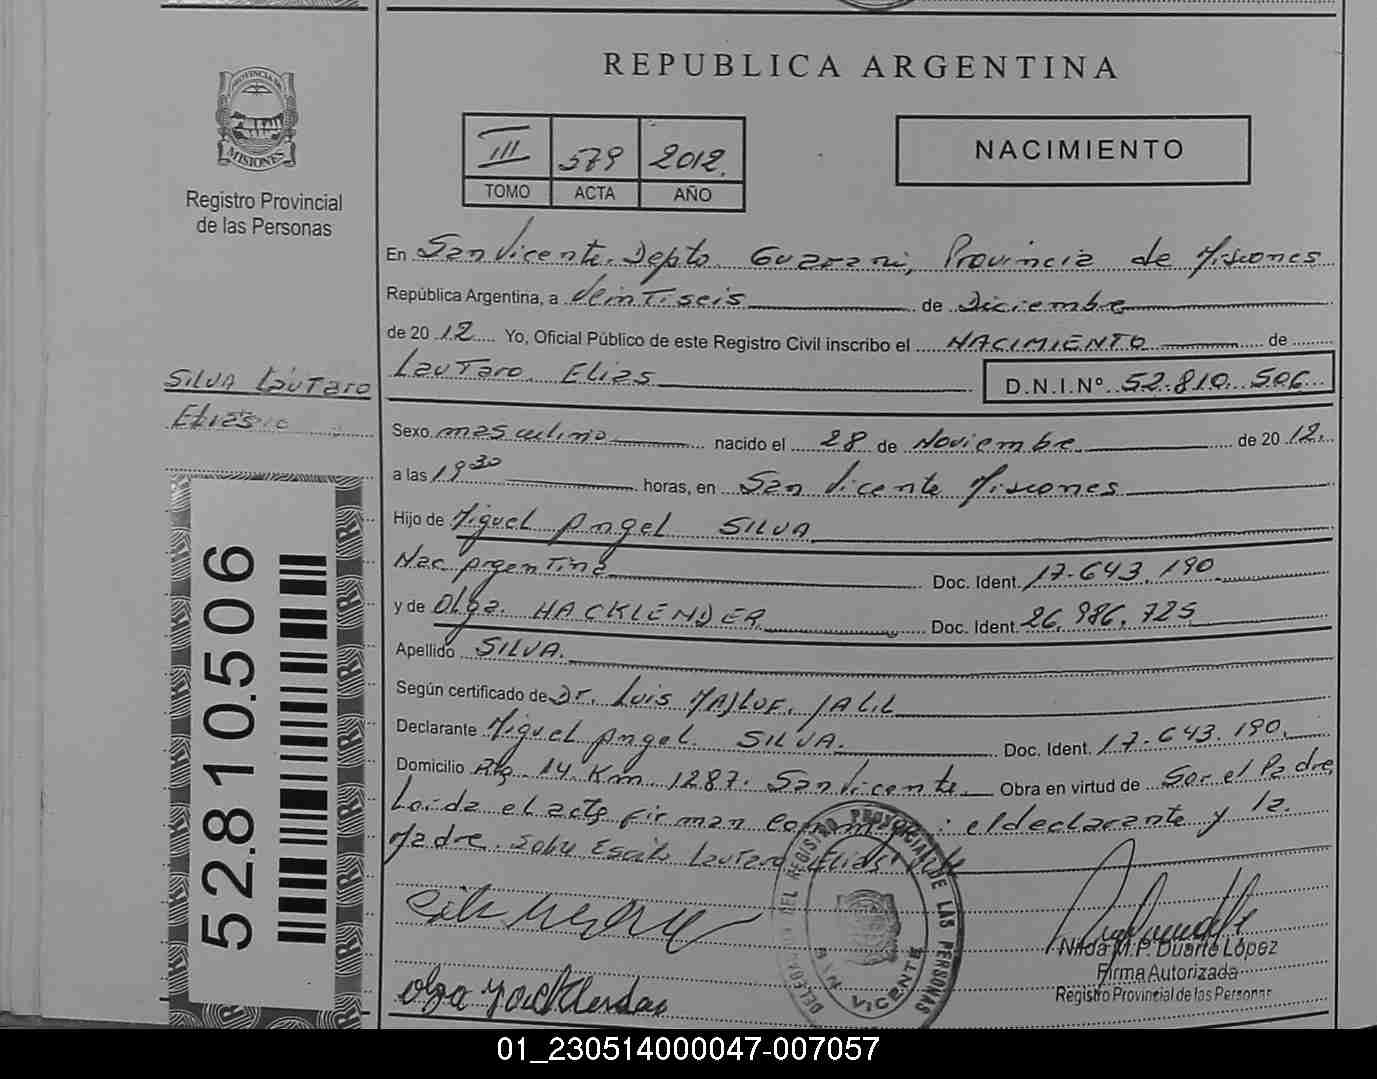 REPUBLICA ARGENTINA
PROVINCIA DE
MISIONES
Registro Provincial
de las Personas
III 579 2012.
TOMO ACTA AÑO
NACIMIENTO
En San Vicente. Depto. Guarani, Provincia de Misiones
República Argentina, a Veintiseis de Diciembre
de 2012 Yo, Oficial Público de este Registro Civil inscribo el NACIMIENTO de
Lautaro Elias D.N.I.Nº 52.810.506
SILVA Lautaro
Elias
Sexo masculino nacido el 28 de Noviembre de 2012.
a las 19 30 horas, en San Vicente Misiones
Hijo de Miguel Angel SILVA
Nac. Argentina Doc. Ident. 17.643.190
y de Olga HACKLENDER Doc. Ident. 26.986.725
Apellido SILVA.
Según certificado de Dr. Luis JALIL
Declarante Miguel Angel SILVA. Doc. Ident. 17.643.190.
Domicilio Rta. 14 Km 1287. San Vicente. Obra en virtud de Ser el Padre
Leida el acta firman : el declarante y la
Madre. Sobre Escrito Lautaro Elias
52.810.506
DELEGACION DEL REGISTRO PROVINCIAL DE LAS PERSONAS
SAN VICENTE
Nilda M.P. Duarte López
Firma Autorizada
Registro Provincial de las Personas
01_230514000047-007057